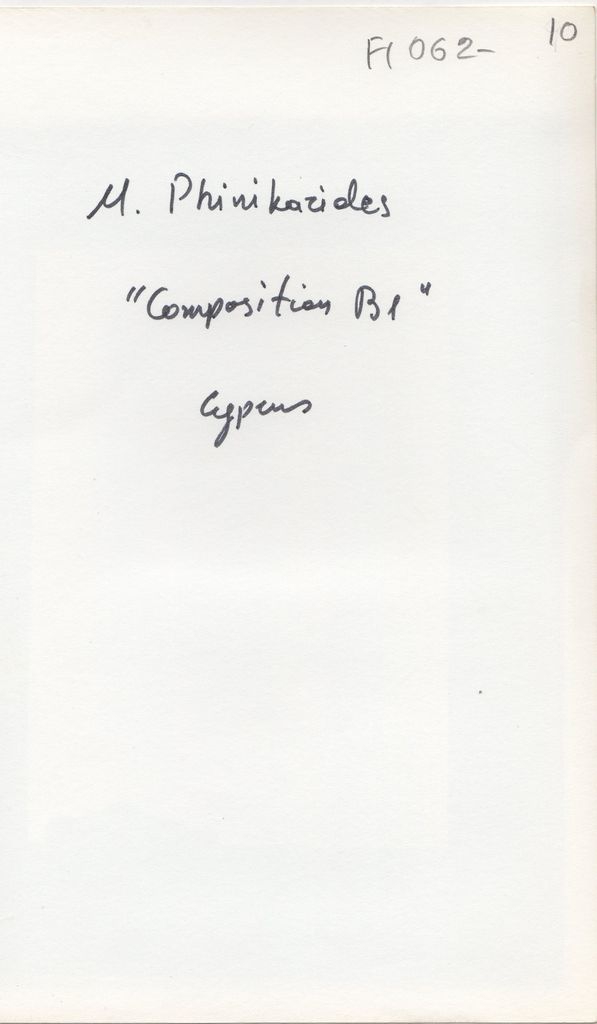 FI 062- 10
M. Phinikarides
"Composition B1"
Cyprus